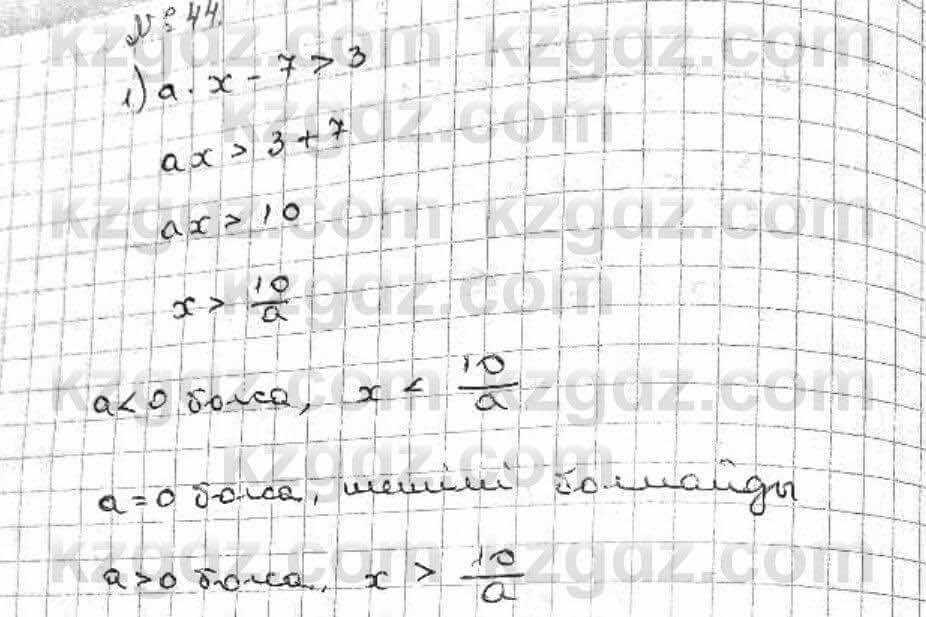 № 844.
1) a · x - 7 > 3
ax > 3 + 7
ax > 10
x > 10/a
a < 0 болса, x < 10/a
a = 0 болса, шешімі болмайды
a > 0 болса, x > 10/a
kzgdz.com kzgdz.com
kzgdz.com
kzgdz.com kzgdz.com
kzgdz.com
kzgdz.com kzgdz.com
kzgdz.com
kzgdz.com kzgdz.com